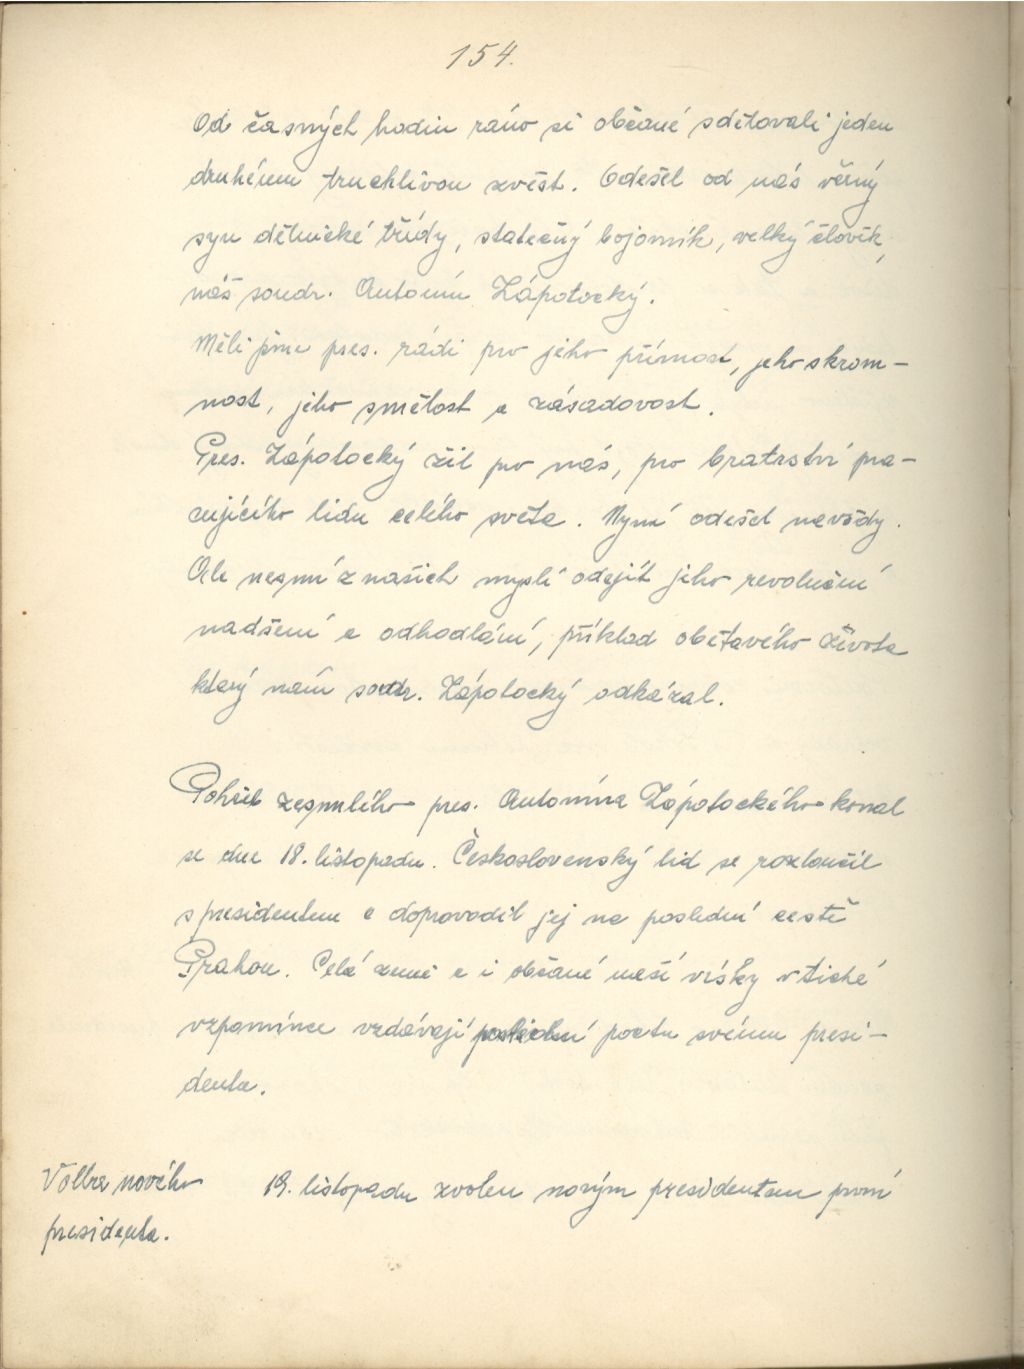 154.
Od časných hodin ráno si občané sdělovali jeden
druhému truchlivou zvěst. Odešel od nás věrný
syn dělnické třídy, statečný bojovník, velký člověk,
náš soudr. Antonín Zápotocký.
Měli jsme pres. rádi pro jeho přímost, jeho skrom-
nost, jeho smělost a zásadovost.
Pres. Zápotocký žil pro nás, pro bratrství pra-
cujícího lidu celého světa. Nyní odešel navždy.
Ale nesmí z našich myslí odejít jeho revoluční
nadšení a odhodlání, příklad obětavého života
který nám soudr. Zápotocký odkázal.
Pohřeb zesnulého pres. Antonína Zápotockého konal
se dne 18. listopadu. Československý lid se rozloučil
s presidentem a doprovodil jej na poslední cestě
Prahou. Celá země a i občané naší vísky v tiché
vzpomínce vzdávají poslední poctu svému presi-
denta.
Volba nového
presidenta.
19. listopadu zvolen novým presidentem první